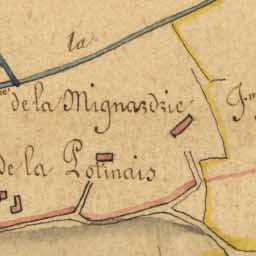 la
de la Mignardrie
de la Potinais